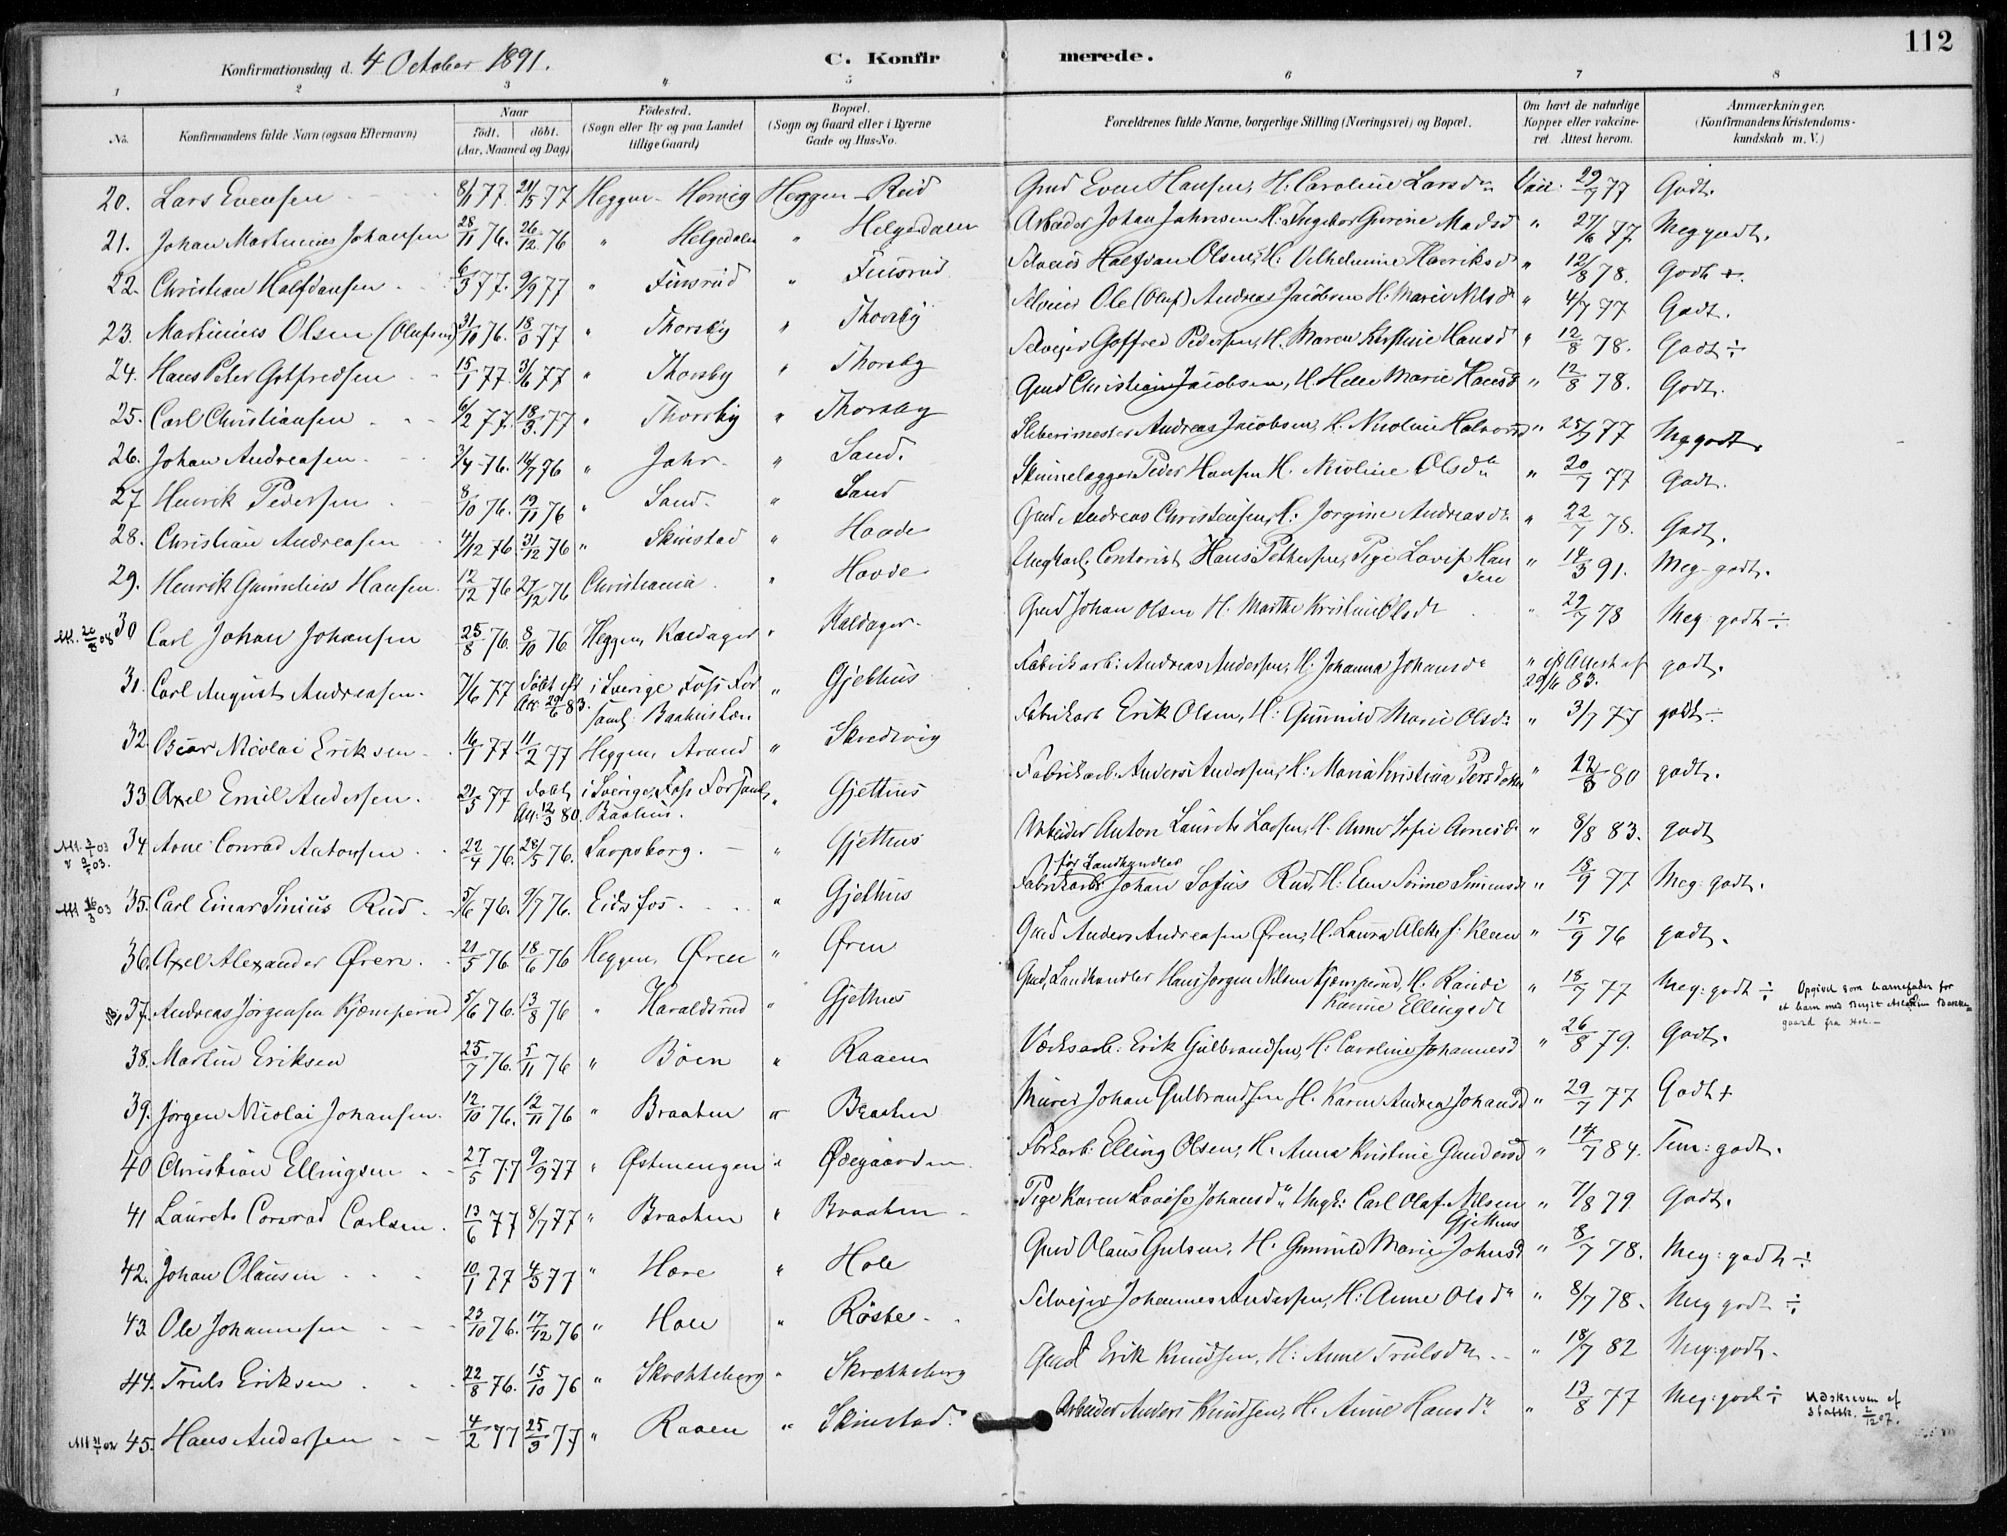 112
Konfirmationsdag d. 4 October 1891. C. Konfirmerede.
1 2 3 4 5 6 7 8
No. Konfirmandens fulde Navn (ogsaa Efternavn) Naar födt. döbt. (Aar, Maaned og Dag) Födested. (Sogn eller By og paa Landet tillige Gaard) Bopæl. (Sogn og Gaard eller i Byerne Gade og Hus-No. Forældrenes fulde Navne, borgerlige Stilling (Næringsvei) og Bopæl. Om havt de naturlige Kopper eller vaccineret. Attest herom. Anmærkninger. (Konfirmandens Kristendomskundskab m. V.)
20. Lars Evensen 8/1 77. 77 Heggen Heggen Gmd Even Hansen, H. Caroline Larsdr Vacc. 29/7 77 Godt.
21. Johan Martinius Johansen 28/11 76. 26/12 76 " Helgedalen " Helgedalen Arbeider Johan H: Ingebor Gurine Madsd " 27/6 77 Meg godt.
22. Christian Halfdansen 6/3 77. 9/9 77 " Finsrud " Finsrud Selveier Halfdan Olsen, H: Vilhelmine Henriksd " 12/8 78. Godt +.
23. Martinius Olsen (Olufsen) 31/10 76. 18/3 77 " Thorsby " Thorsby Selveier Ole (Oluf) Andreas Jacobsen H: Marie Nilsdr " 4/7 77 Godt.
24. Hans Peter Gotfredsen 15/1 77. 3/6 77 " Thorsby " Thorsby Selveier Gotfred Pedersen, H. Maren Kirstine Hansd " 12/8 78. Godt ÷
25. Carl Christiansen 6/2 77. 18/3 77 " Thorsby " Thorsby Gmd Christian Jacobsen, H. Helle Marie Hansd " 12/8 78. Godt.
26. Johan Andreasen 3/4 76. 16/7 76 " Jahr. " Sand. Sliberimester Andreas Jacobsen, H. Nicoline Halvorsd " 25/7 77 Meg godt.
27 Henrik Pedersen 8/10 76. 19/11 76 " Sand. " Sand Skinnelægger Peder Hansen H. Nicoline Olsdr " 20/7 77 Godt.
28. Christian Andreasen 4/12 76 31/12 76 " Skinstad " Hovde Gmd Andreas Christensen, H: Jorgine Andreasdr " 22/7 78. Godt.
29. Henrik Gunnelius Hansen. 12/12 76 27/12 76 Christiania. " Hovde Ungkarl, Contorist Hans Pettersen, Pige Lovise Hansen " 14/3 91. Meg godt.
30 Carl Johan Johansen 25/8 76. 8/10 76. Heggen, Kaldager " Kaldager. Gmd Johan Olsen H. Marthe Kristine Olsdr " 29/7 78 Meg: godt ÷
31. Carl August Andreasen. 7/6 77 Født ifl Att: 29/6 83. i Sverige, Foss Forsaml: Baahuslæn " Gjethus Fabrikarb: Andreas Andersen, H: Johanna Johansdr " ifl Attest af 29/6 83. godt.
32 Oscar Nicolai Eriksen 16/1 77 11/2 77 Heggen, Strand " Skredsvig Fabrikarb Erik Olsen, H: Gunnild Marie Olsdr " 3/7 77 godt ÷
33 Axel Emil Andersen. 21/5 77 Født Att: 12/3 80. i Sverige, Foss Forsaml, Baahus. " Gjethus Fabrikarb. Anders Andersen, H: Maria Kristina Persdotter " 12/3 80 godt.
34 Arne Conrad Antonsen 22/4 76. 28/5 76. Sarpsborg. " Gjethus Arbeider Anton Laurits Larsen, H. Anne Sofie Arnesdr " 8/8 83. godt
35. Carl Einar Sinius Rud 5/6 76. 9/7 76. Eidsfos. " Gjethus Fabrikarb: før Landhandler Johan Sofus Rud, H: Elen Sorine Simensdr " 18/9 77 Meg: godt.
36. Axel Alexander Øren 21/5 76 18/6 76 Heggen, Øren " Øren Gmd Anders Andreasen Øren, H. Laura Aleth f. Keen " 15/9 76 godt.
37. Andreas Jörgensen Kjæmperud 5/6 76. 13/8 76 " Haraldsrud " Gjethus Gmd, Landhandler Hans Jorgen Nilsen Kjæmperud, H. Randi Karine Ellingsdr " 18/7 77 Meg: godt ÷ Opgivet som barnefader for et barn med Birgit fra Hol.
38. Martin Eriksen 25/7 76. 5/11 76 " Böen " Raaen Værksarb: Erik Gulbrandsen, H: Caroline Johannesd " 26/8 79. Godt.
39. Jorgen Nicolai Johansen. 12/10 76. 12/11 76 " Braaten " Braaten Murer Johan Gulbrandsen H. Karen Andrea Johansd " 29/7 77 Godt +
40 Christian Ellingsen 27/5 77 9/9 77 " Østmengen " Ødegaarden Elling Olsen, H. Anna Kristine Gundersd " 14/7 84. Tem: godt.
41 Laurits Conrad Carlsen. 13/6 77 8/7 77 " Braaten " Braaten Pige Karen Lovise Johansdr, Ungk: Carl Olaf Nilsen Gjethus " 7/8 79. Godt.
42. Johan Olausen 10/1 77 4/3 77 " Hære " Hole Gmd Olaus Gulsen, H. Gunnild Marie Johnsd " 8/7 78. Meg: godt ÷
43 Ole Johannesen 23/10 76. 17/12 76 " Hole " Röste Selveier Johannes Andersen, H: Anne Olsdr " 8/7 78. Meg godt ÷
44. Truls Eriksen 22/8 76. 15/10 76 " Skrætteberg " Skrætteberg Gmd Erik Knudsen, H: Anne Trulsdr " 18/7 82 Meg: godt.
45. Hans Andersen 4/2 77 25/3 77 " Raaen " Skinstad. Arbeider Anders Knudsen, H. Anne Hansdr " 13/8 77 Meg: godt ÷ Udskreven af Statsk. 2/12 07.